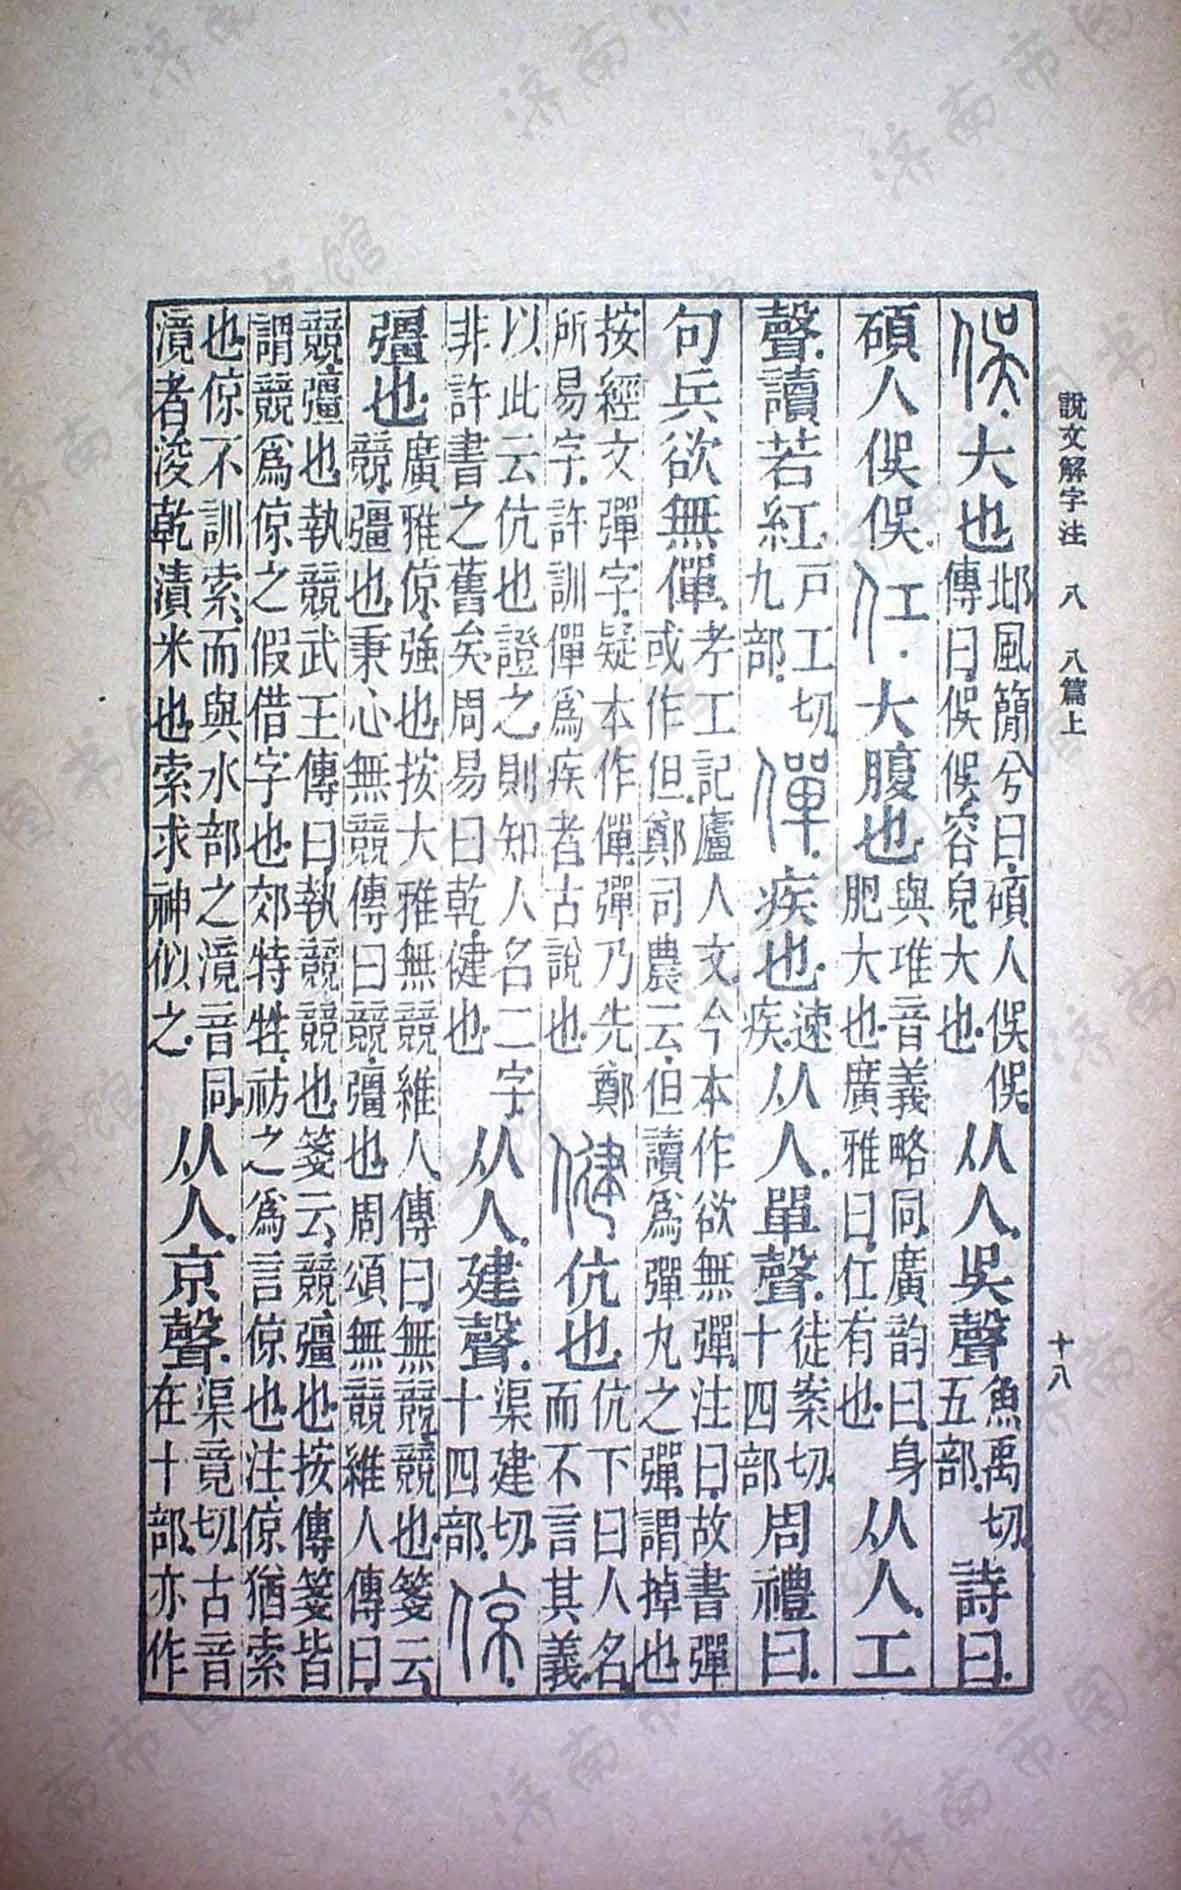 說文解字注 八 八篇上 十八
俁大也邶風簡兮曰碩人俁俁傳曰俁俁容皃大也从人吳聲魚禹切五部詩曰
碩人俁俁仜大腹也與𨾊音義略同廣韵曰身肥大也廣雅曰仜有也从人工
聲讀若紅戶工切九部僤疾也速疾从人單聲徒案切十四部周禮曰
句兵欲無僤考工記廬人文今本作欲無彈注曰故書彈或作但鄭司農云但讀爲彈丸之彈謂掉也
按經文彈字疑本作僤彈乃先鄭所易字許訓僤爲疾者古說也健伉也伉下曰人名而不言其義
以此云伉也證之則知人名二字非許書之舊矣周易曰乾健也从人建聲渠建切十四部倞
彊也廣雅倞強也按大雅無競維人傳曰無競競也箋云競彊也秉心無競傳曰競彊也周頌無競維人傳曰
競彊也執競武王傳曰執競競也箋云競彊也按傳箋皆謂競爲倞之假借字也郊特牲祊之爲言倞也注倞猶索
也倞不訓索而與水部之滰音同滰者浚乾漬米也索求神似之从人京聲渠竟切古音在十部亦作